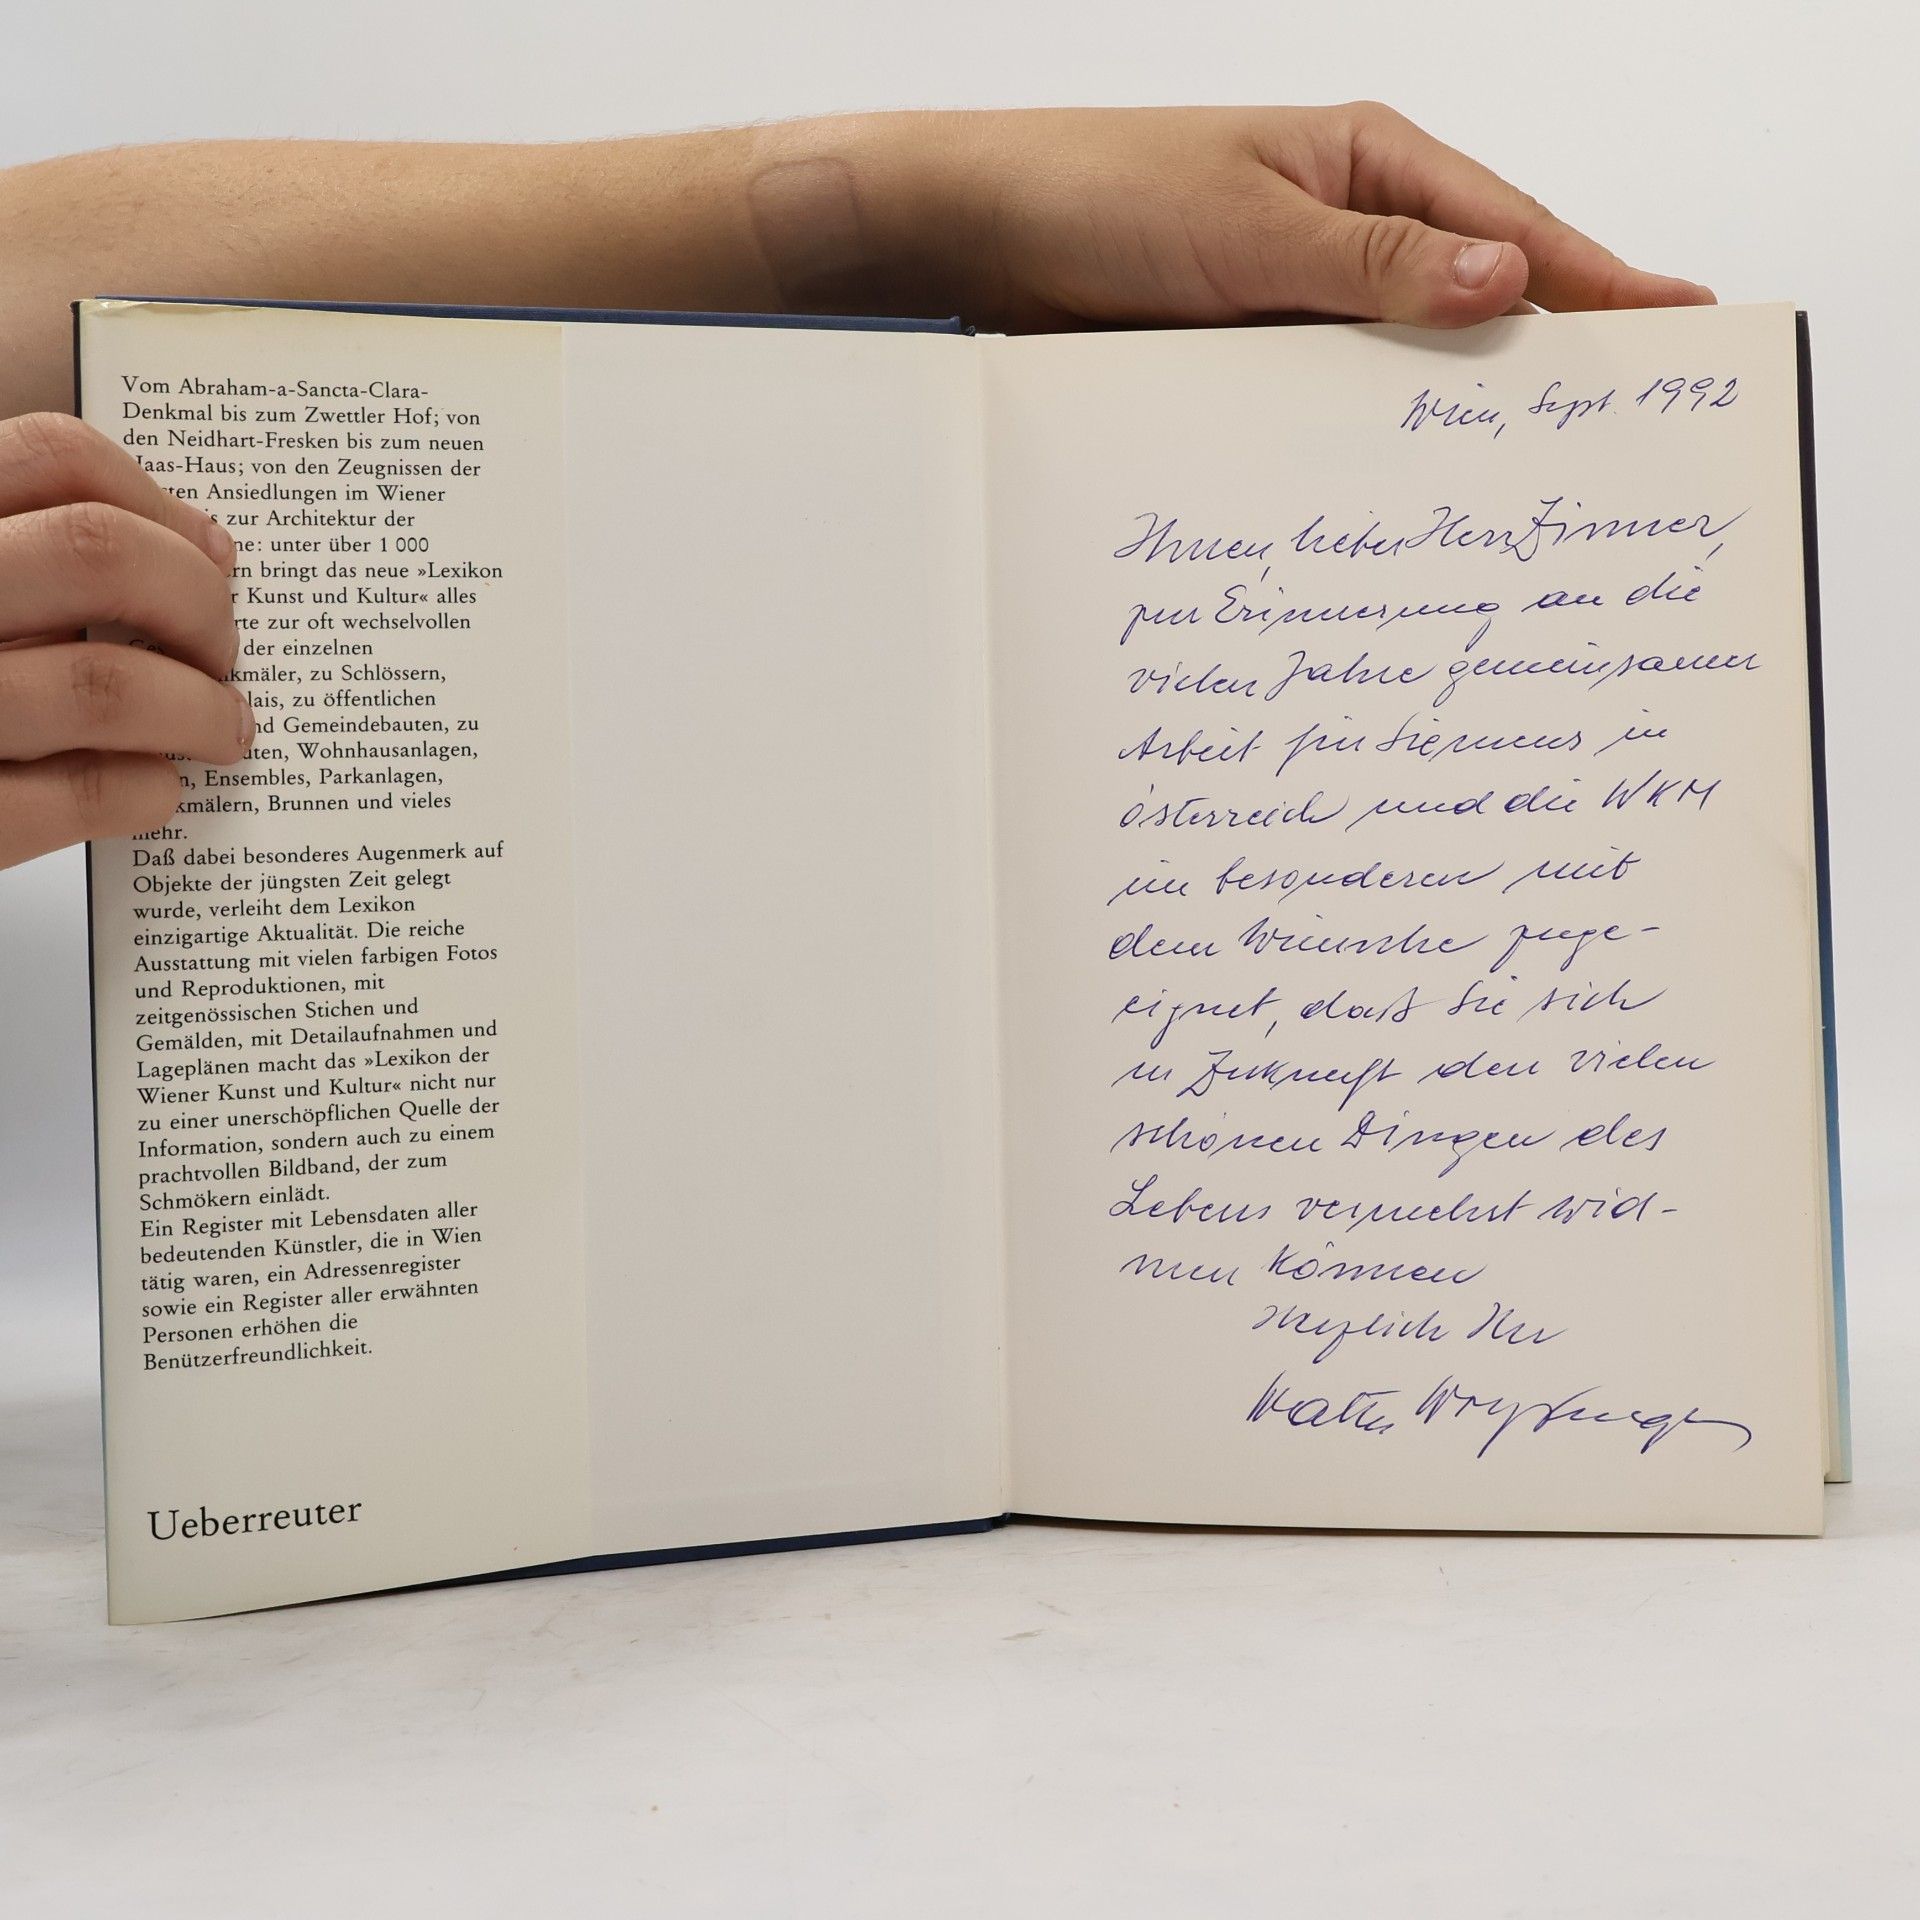 Vom Abraham-a-Sancta-Clara-
Denkmal bis zum Zwettler Hof; von
den Neidhart-Fresken bis zum neuen
Haas-Haus; von den Zeugnissen der
Ansiedlungen im Wiener
zur Architektur der
unter über 1 000
bringt das neue »Lexikon
Kunst und Kultur« alles
zur oft wechselvollen
der einzelnen
zu Schlössern,
zu öffentlichen
Gemeindebauten, zu
Wohnhausanlagen,
Ensembles, Parkanlagen,
Brunnen und vieles
mehr.
Daß dabei besonderes Augenmerk auf
Objekte der jüngsten Zeit gelegt
wurde, verleiht dem Lexikon
einzigartige Aktualität. Die reiche
Ausstattung mit vielen farbigen Fotos
und Reproduktionen, mit
zeitgenössischen Stichen und
Gemälden, mit Detailaufnahmen und
Lageplänen macht das »Lexikon der
Wiener Kunst und Kultur« nicht nur
zu einer unerschöpflichen Quelle der
Information, sondern auch zu einem
prachtvollen Bildband, der zum
Schmökern einlädt.
Ein Register mit Lebensdaten aller
bedeutenden Künstler, die in Wien
tätig waren, ein Adressenregister
sowie ein Register aller erwähnten
Personen erhöhen die
Benützerfreundlichkeit.
Ueberreuter
Wien, Sept. 1992
Ihnen, lieber Herr Zinner,
zur Erinnerung an die
vielen Jahre gemeinsamer
Arbeit für Siemens in
Österreich und die WKM
im besonderen mit
dem Wunsche zuge-
eignet, daß Sie sich
in Zukunft den vielen
schönen Dingen des
Lebens vermehrt wid-
men können
Herzlich Ihr
Walter